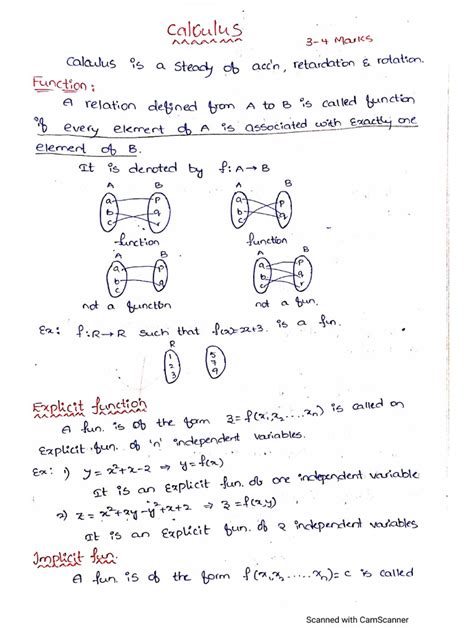 Calculus
3-4 Marks
Calculus is a steady of acc'n, retardation & rotation.
Function:
A relation defined from A to B is called function
if every element of A is associated with exactly one
element of B.
It is denoted by f: A → B
A B A B
a b c p q r a b c p q
function function
A B A B
a b c p q a b c p q r
not a function not a fun.
Ex: f: R → R such that f(x)=x+3. is a fun.
R
1 5
2 7
3 9
Explicit function
A fun. is of the form z = f(x, x₂ ... xₙ) is called an
Explicit fun. of 'n' independent variables.
Ex: 1) y = x²+x-2 ⇒ y = f(x)
It is an Explicit fun. of one independent variable
2) z = x²+xy-y²+x+2 ⇒ z = f(x,y)
It is an Explicit fun. of 2 independent variables
Implicit fun:
A fun is of the form f(x, x₂ ..... xₙ) = c is called
Scanned with CamScanner